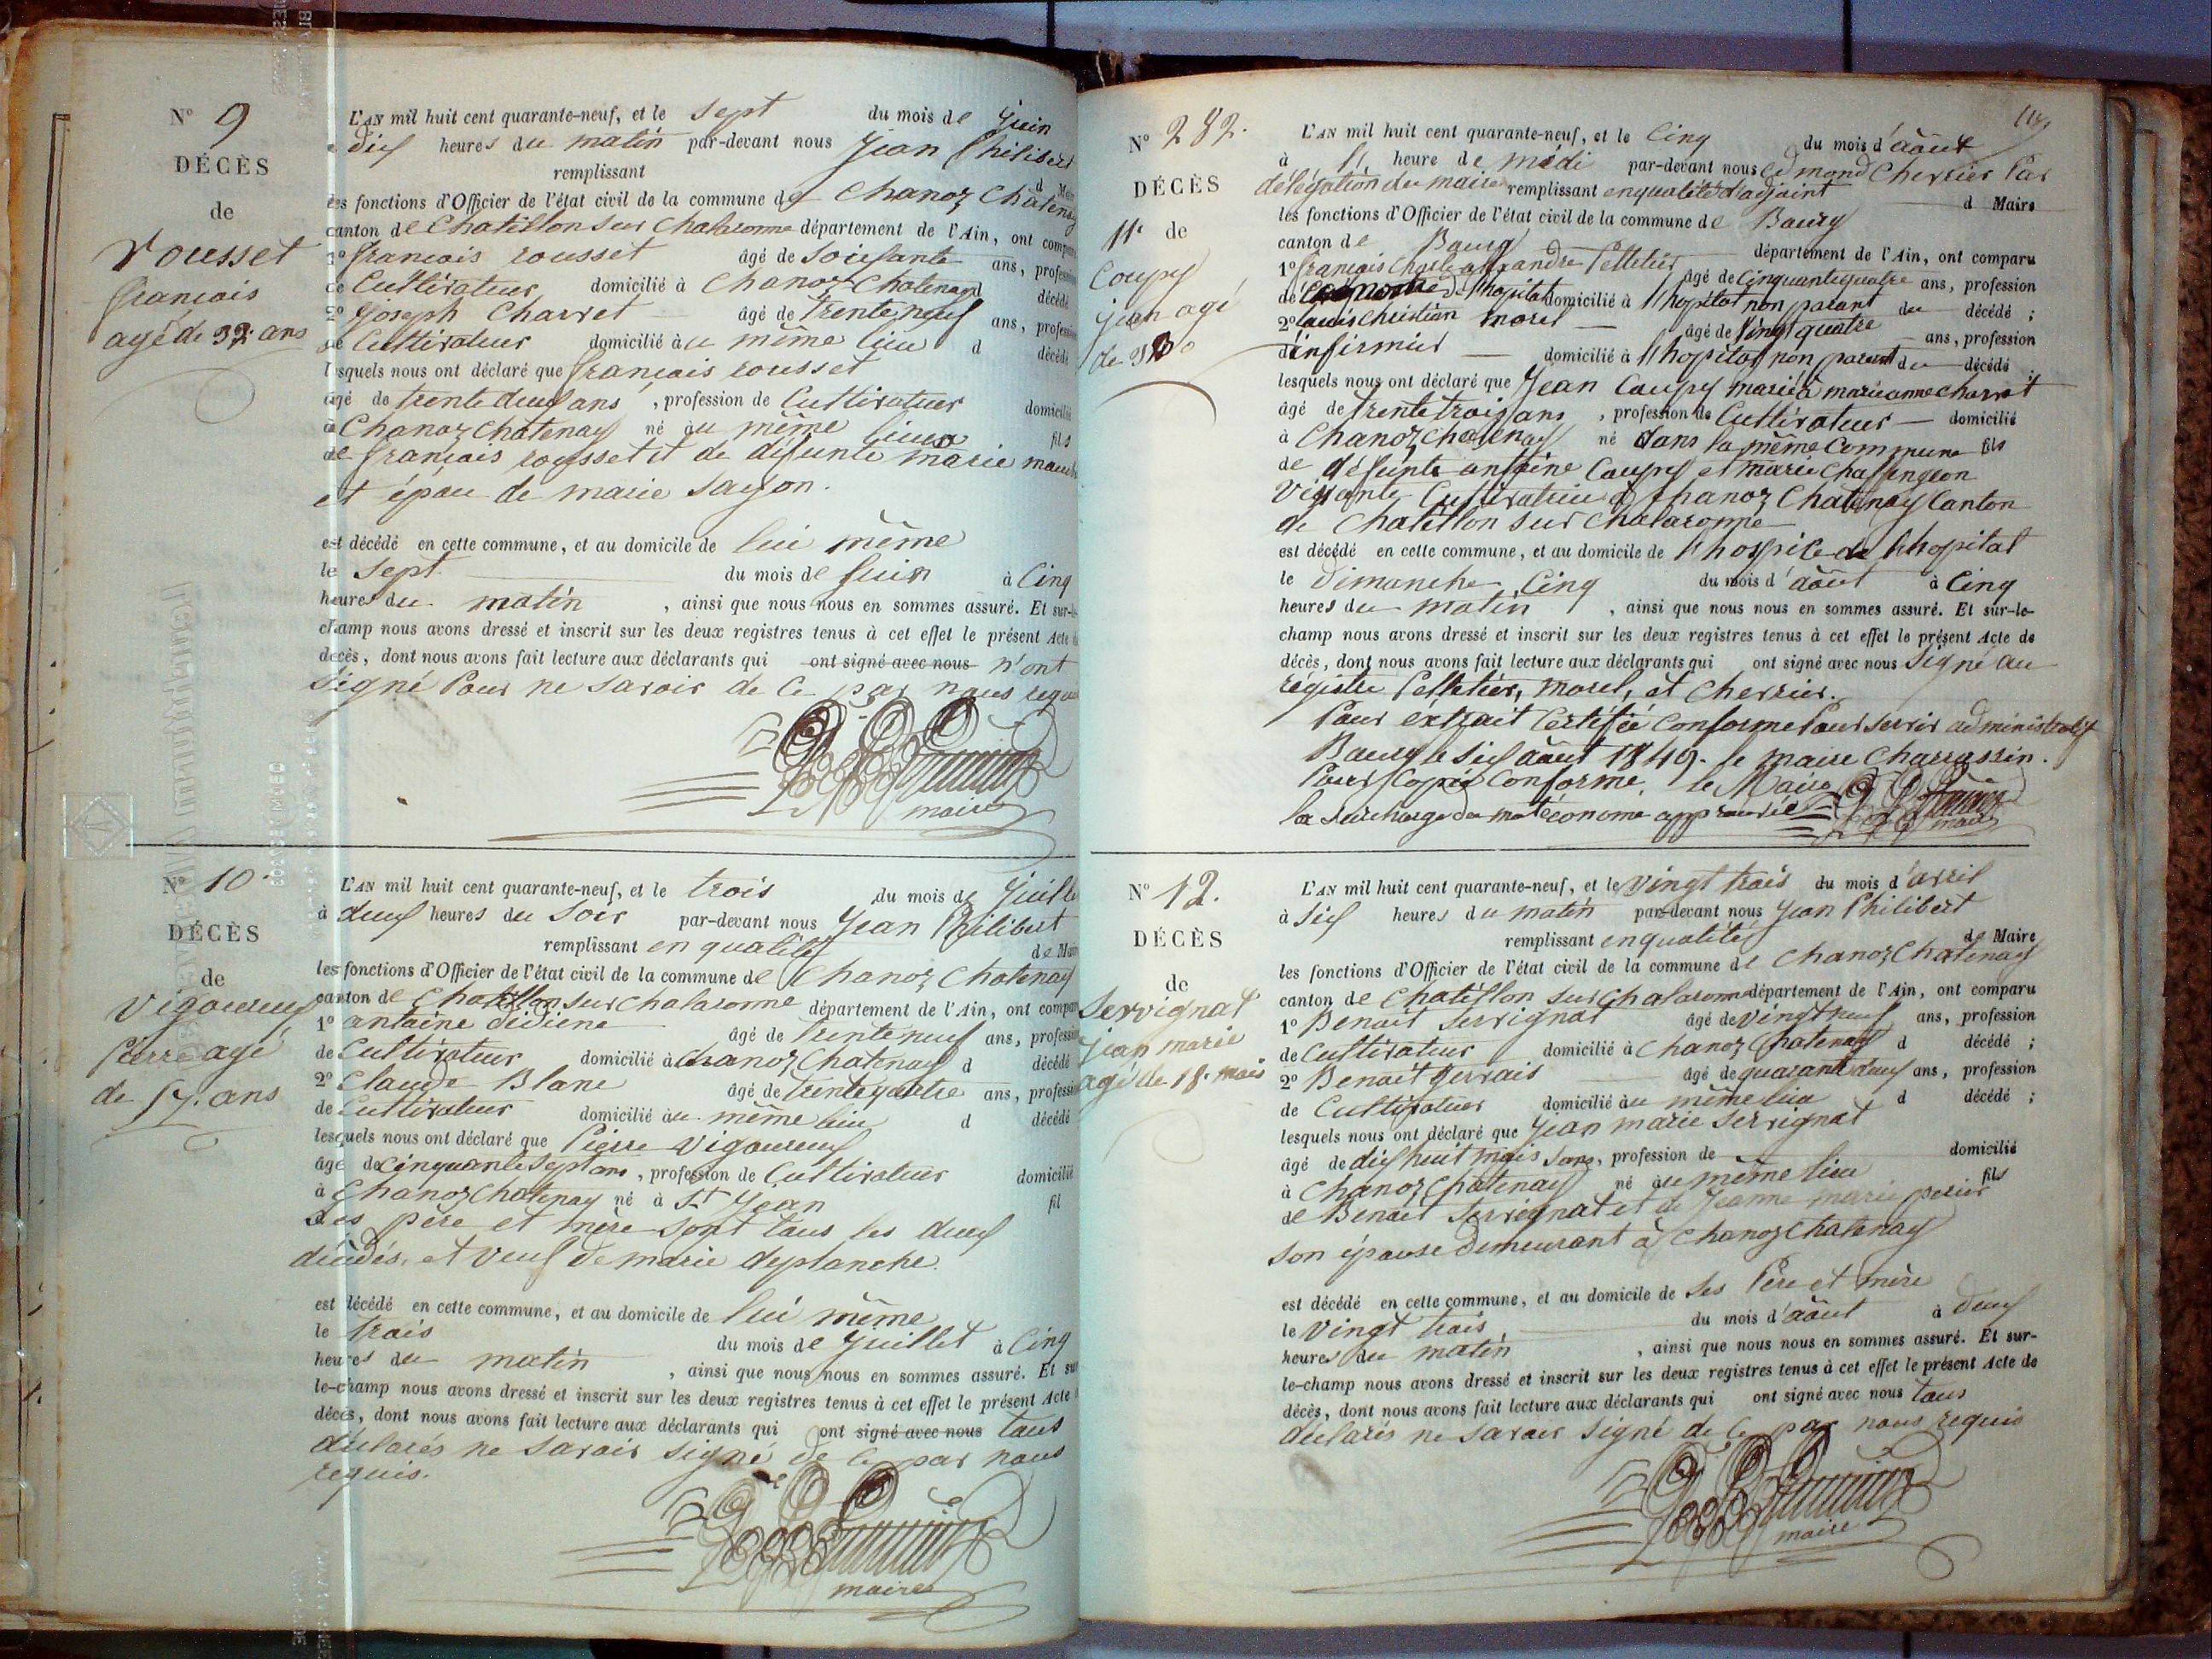 Nº 9
DÉCÈS
de
rousset
françois
agé de 32 ans
L'AN mil huit cent quarante-neuf, et le sept du mois de juin
dix heures du matin par-devant nous Jean Philibert
remplissant d Maire
les fonctions d'Officier de l'état civil de la commune de Chanoz Chatenay
canton de Chatillon sur Chalaronne département de l'Ain, ont comparu
1º françois rousset âgé de soixante ans, profession
de Cultivateur domicilié à Chanoz Chatenay d décédé
2º joseph Charvet âgé de trente neuf ans, profession
de Cultivateur domicilié au même lieu d décédé
lesquels nous ont déclaré que françois rousset
âgé de trente deux ans, profession de Cultivateur domicilié
à Chanoz Chatenay né au même lieu fils
de françois rousset et de défunte marie
et épou de marie sayon.
est décédé en cette commune, et au domicile de lui même
le sept du mois de juin à Cinq
heures du matin, ainsi que nous nous en sommes assuré. Et sur-le-
champ nous avons dressé et inscrit sur les deux registres tenus à cet effet le présent Acte de
décès, dont nous avons fait lecture aux déclarants qui ont signé avec nous n'ont
signé Pour ne savoir de Ce par nous requis
maire
Nº 10
DÉCÈS
de
Vigoureux
Pierre agé
de 57. ans
L'AN mil huit cent quarante-neuf, et le trois du mois de juillet
à deux heures du soir par-devant nous Jean Philibert
remplissant en qualité de Maire
les fonctions d'Officier de l'état civil de la commune de Chanoz Chatenay
canton de Chatillon sur Chalaronne département de l'Ain, ont comparu
1º antoine didiene âgé de trente neuf ans, profession
de Cultivateur domicilié à Chanoz Chatenay d décédé
2º Claude Blanc âgé de trente quatre ans, profession
de Cultivateur domicilié au même lieu d décédé
lesquels nous ont déclaré que Pierre Vigoureux
âgé de cinquante sept ans, profession de Cultivateur domicilié
à Chanoz Chatenay né à St Jean fil
ses père et mère sont tous les deux
décédés, et veuf de marie deplanche.
est décédé en cette commune, et au domicile de lui même
le trois du mois de juillet à Cinq
heures du matin, ainsi que nous nous en sommes assuré. Et sur
le-champ nous avons dressé et inscrit sur les deux registres tenus à cet effet le présent Acte
décès, dont nous avons fait lecture aux déclarants qui ont signé avec nous tous
déclarés ne savoir signé de Ce par nous
requis.
maire
Nº 282.
DÉCÈS
11e de
Coupy
jean agé
L'AN mil huit cent quarante-neuf, et le Cinq du mois d'août
à l' heure de midi par-devant nous Edmond Cherrier Par
délégation du maire remplissant en qualité d'adjoint d Maire
les fonctions d'Officier de l'état civil de la commune de Bourg
canton de Bourg département de l'Ain, ont comparu
1º françois Charle alexandre Pelletier âgé de Cinquante quatre ans, profession
de économe de l'hopital domicilié à l'hopital non parent du décédé ;
2º louis christian morel âgé de vingt quatre ans, profession
d'infirmier domicilié à l'hopital non parent du décédé
lesquels nous ont déclaré que Jean Coupy marié à marie anne charvet
âgé de trente trois ans, profession de Cultivateur domicilié
à Chanoz Chatenay né dans la même Commune fils
de défunte antoine Coupy et marie Chassingeon
vivante Cultivatrice à Chanoz Chatenay Canton
de Chatillon sur Chalaronne
est décédé en cette commune, et au domicile de l'hospice de l'hopital
le dimanche Cinq du mois d'août à Cinq
heures du matin, ainsi que nous nous en sommes assuré. Et sur-le-
champ nous avons dressé et inscrit sur les deux registres tenus à cet effet le présent Acte de
décès, dont nous avons fait lecture aux déclarants qui ont signé avec nous signé au
régistre Pelletier, morel, et Cherrier.
Pour éxtrait Certifié Conforme Pour servir administratif
Bourg le six août 1849. le maire Charrassin.
Pour Copie Conforme. le Maire
la surcharge du mot économe approuvée
maire
Nº 12.
DÉCÈS
de
Servignat
jean marie
agé de 18. mois
L'AN mil huit cent quarante-neuf, et le vingt trois du mois d'avril
à six heures du matin par-devant nous Jean Philibert
remplissant en qualité de Maire
les fonctions d'Officier de l'état civil de la commune de Chanoz Chatenay
canton de Chatillon sur Chalaronne département de l'Ain, ont comparu
1º Benoit Servignat âgé de vingt neuf ans, profession
de Cultivateur domicilié à Chanoz Chatenay d décédé ;
2º Benoit gervais âgé de quarant deux ans, profession
de Cultivateur domicilié au même lieu d décédé ;
lesquels nous ont déclaré que Jean marie Servignat
âgé de dix huit mois sans, profession de domicilié
à Chanoz Chatenay né au même lieu fils
de Benoit Servignat et de Jeanne marie perier
son épouse demeurant à Chanoz Chatenay
est décédé en cette commune, et au domicile de ses Père et mère
le vingt trois du mois d'août à deux
heures du matin, ainsi que nous nous en sommes assuré. Et sur-
le-champ nous avons dressé et inscrit sur les deux registres tenus à cet effet le présent Acte de
décès, dont nous avons fait lecture aux déclarants qui ont signé avec nous tous
déclarés ne savoir signé de Ce par nous requis
maire